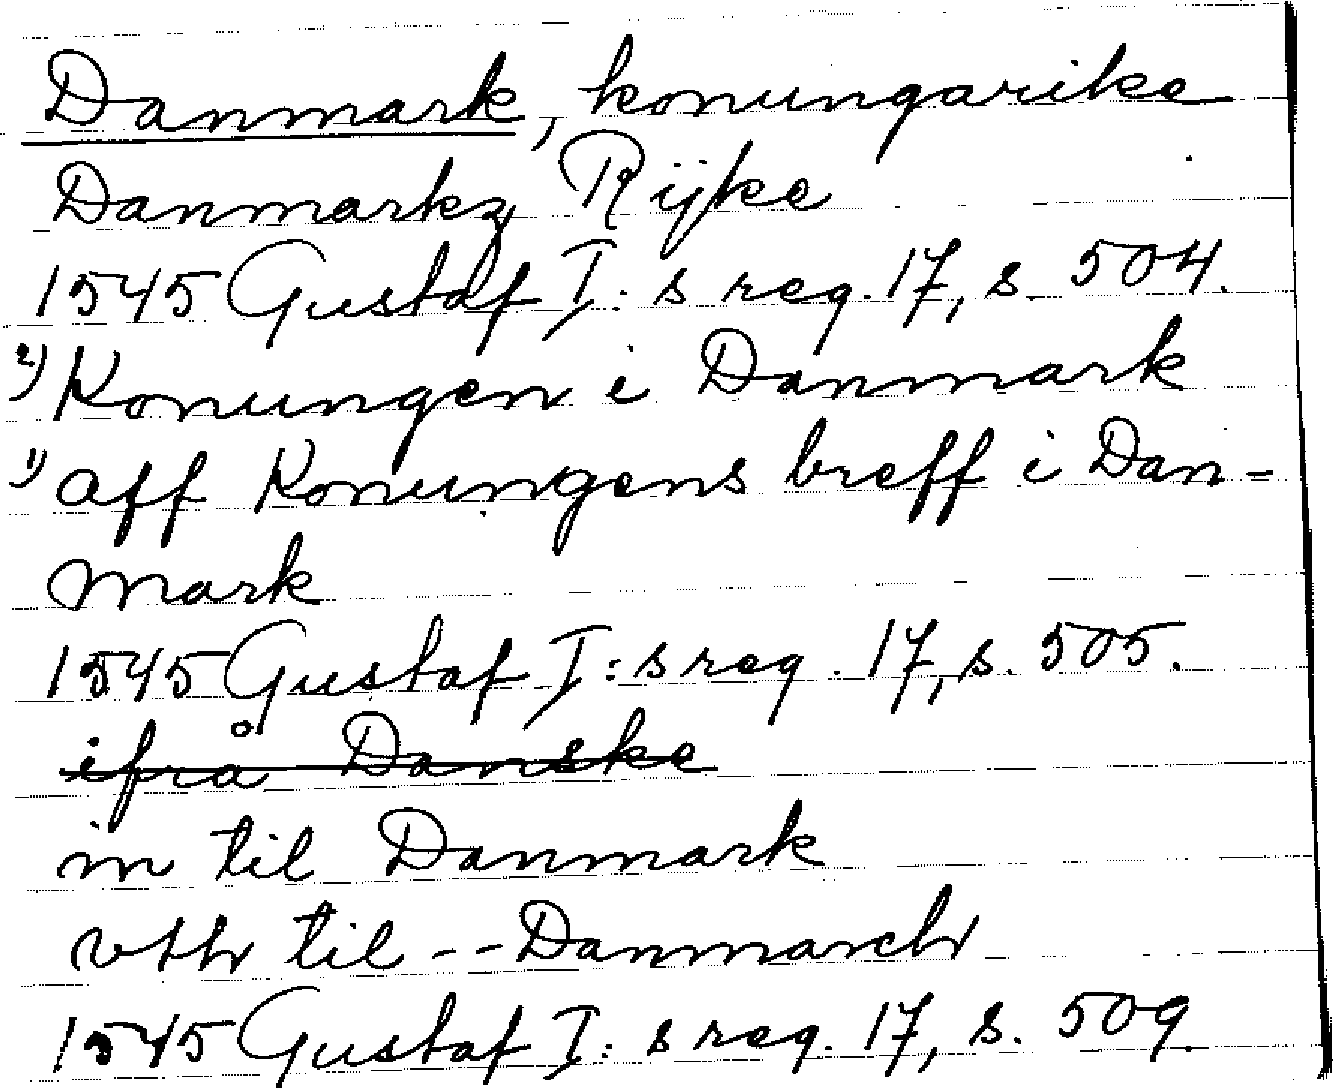 Danmark, konungarike
Danmarkz Rijke
1545 Gustaf I:s reg. 17, s. 504.
2) Konungen i Danmark
1) aff Konungens breff i Dan-
mark
1545 Gustaf I:s reg. 17, s. 505.
ifrå Danske
in til Danmark
vth til -- Danmarch
1545 Gustaf I:s reg. 17, s. 509.